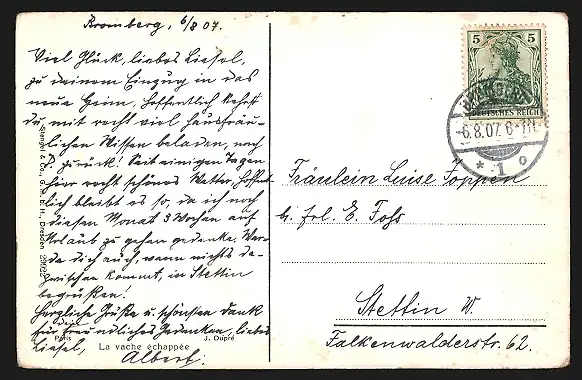 Bromberg, 6/8 07.
Viel Glück, liebes Liesel,
zu deinem Einzug in das
neue Heim. Hoffentlich kehrst
du mit recht viel hausfräu-
lichen Wissen beladen, nach
P. zurück! Seit einigen Tagen
hier recht schönes Wetter. Hoffent-
lich bleibt es so, da ich noch
diesen Monat 3 Wochen auf
Urlaub zu gehen gedenke. Wer-
de dich auch, wenn nichts da-
zwischen kommt, in Stettin
begrüßen!
Herzliche Grüße u. schönsten Dank
für dein freundliches Gedenken, liebes
Liesel,
Albert.
Paris
La vache échappée
J. Dupré
Stengel & Co., G. m. b. H., Dresden
5 5
DEUTSCHES REICH
6.8.07. 6-7N.
* 1 o
Fräulein Luise Foppen
bei Frl. E.
Stettin W.
Falkenwalderstr. 62.